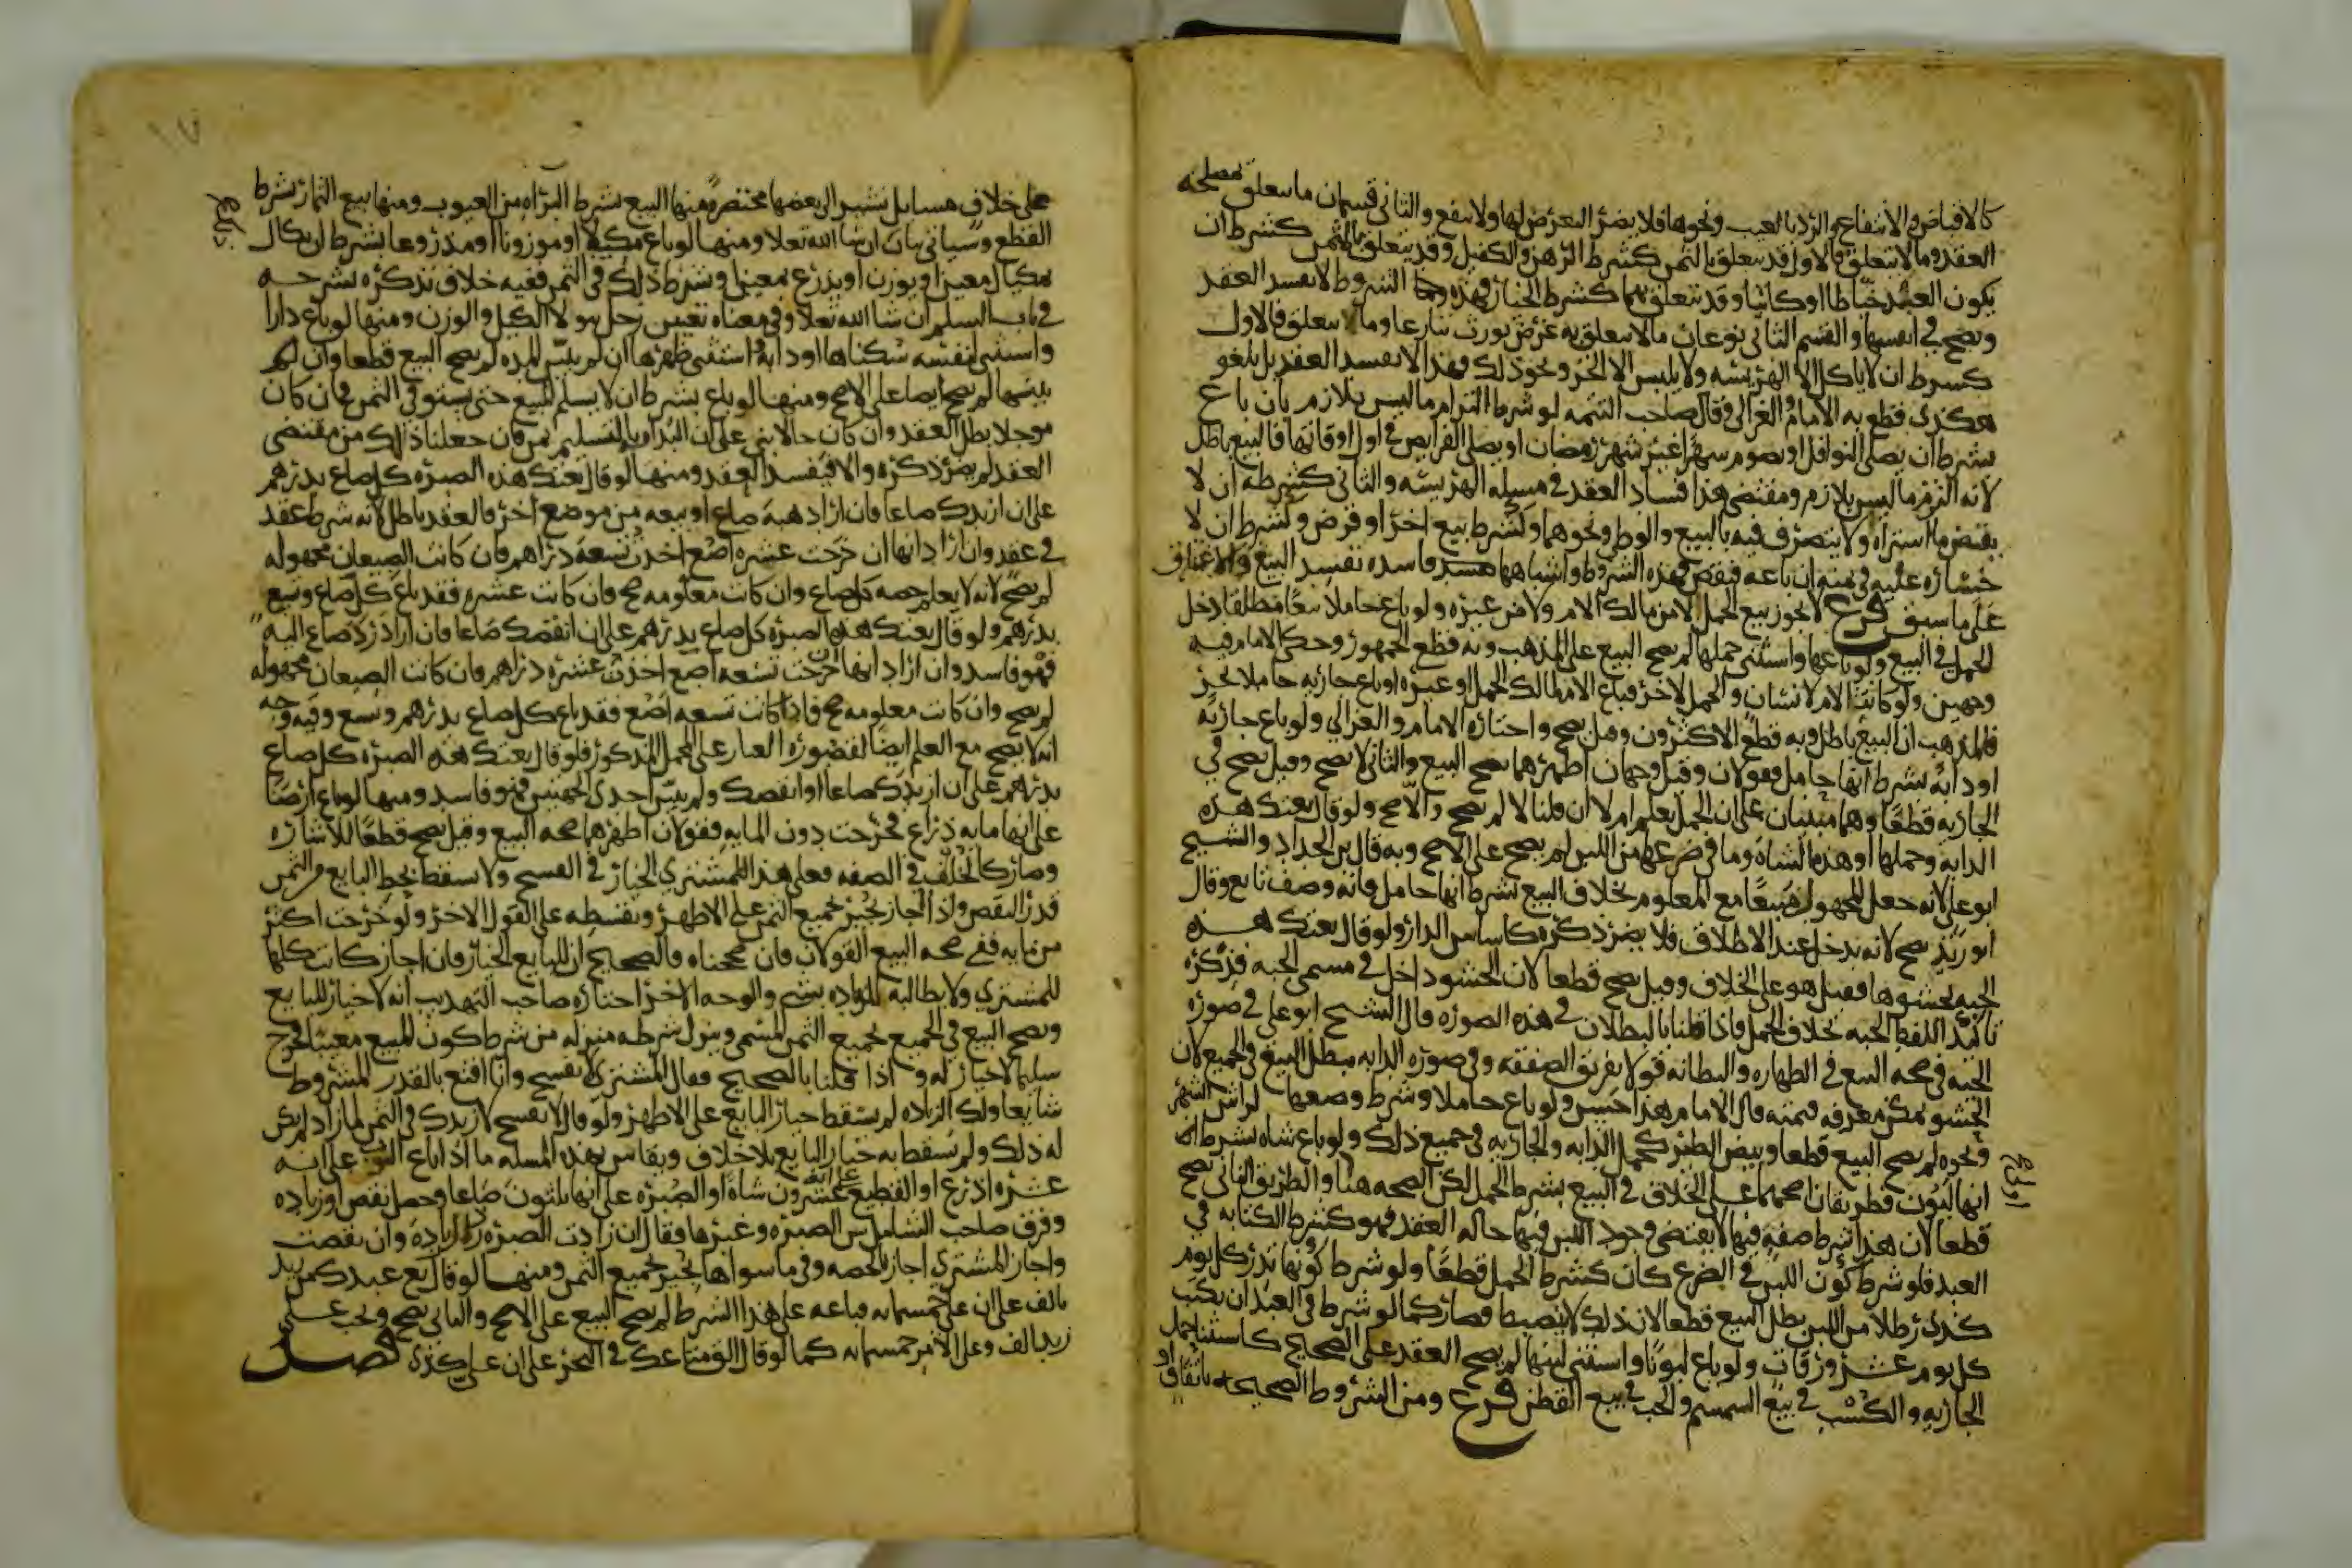 كالاقباض والانتفاع والرد بالعيب ونحوها فلا يضر التعرض لها ولا ينفع والثاني قسمان ما يتعلق بمصلحة
العقد وما لا يتعلق فالاول قد يتعلق بالثمن كشرط الرهن والكفيل وقد يتعلق بالمثمن كشرط ان
يكون العبد خياطا او كاتبا وقد يتعلق بهما كشرط الخيار فهذه الشروط لا تفسد العقد
وتصح في انفسها والقسم الثاني نوعان ما لا يتعلق به غرض يورث تنازعا وما يتعلق فالاول
كشرط ان لا ياكل الا الهريسه ولا يلبس الا الخز ونحو ذلك فهذا لا يفسد العقد بل يلغو
هكذى قطع به الامام والغزالي وقال صاحب التتمه لو شرط التزام ما ليس بلازم بان باع
بشرط ان يصلي النوافل او يصوم شهرا غير شهر رمضان او يصلي الفرايض في اول اوقاتها فالبيع باطل
لانه الزم ما ليس بلازم ومقتضى هذا فساد العقد في مسيله الهريسه والثاني كشرطه ان لا
يقبض ما اشتراه ولا يتصرف فيه بالبيع والوطء ونحوهما وكشرط بيع اخر او قرض وكشرط ان لا
خساره عليه في ثمنه ان باعه فنقص فهذه الشروط واشباهها فاسده تفسد البيع والاعتاق
على ما سبق فرع لا يجوز بيع الحمل لا من مالك الام ولا من غيره ولو باع حاملا بيعا مطلقا دخل
الحمل في البيع ولو باعها واستثنى حملها لم يصح البيع على المذهب وبه قطع الجمهور وحكى الامام فيه
وجهين ولو كانت الام لانسان والحمل لاخر فباع الام لمالك الحمل او غيره او باع جاريه حاملا بحر
فالمذهب ان البيع باطل وبه قطع الاكثرون وقيل يصح واختاره الامام والغزالي ولو باع جاريه
او دابه بشرط انها حامل فقولان وقيل وجهان اظهرهما يصح البيع والثاني لا يصح وقيل يصح في
الجاريه قطعا وهما مبنيان على ان الحمل يعلم ام لا ان قلنا لا لم يصح والا صح ولو قال بعتك هذه
الدابه وحملها او هذه الشاه وما في ضرعها من اللبن لم يصح على الاصح وبه قال بن الحداد والشيخ
ابو علي لانه جعل المجهول مبيعا مع المعلوم بخلاف البيع بشرط انها حامل فانه وصف تابع وقال
ابو زيد يصح لانه يدخل عند الاطلاق فلا يضر ذكره كاساس الدار ولو قال بعتك هذه
الجبه بحشوها فقيل هو على الخلاف وقيل يصح قطعا لان الحشو داخل في مسمى الجبه فذكره
تاكيد اللفظ الجبه بخلاف الحمل فاذا قلنا بالبطلان في هذه الصوره قال الشيخ ابو علي في صوره
الجبه في صحه البيع في الظهاره والبطانه قولا تفريق الصفقه وفي صوره الدابه يبطل البيع في الجميع لان
الحشو يمكن معرفه قيمته قال الامام هذا حسن ولو باع حاملا وشرط وضعها لراس الشهر
ونحوه لم يصح البيع قطعا وبيض الطير كحمل الدابه والجاريه في جميع ذلك ولو باع شاه بشرط
انها لبون فطريقان اصحهما على الخلاف في البيع بشرط الحمل لكن الصحه هنا والطريق الثاني يصح
قطعا لان هذا شرط صفه فيها لا يقتضي وجود اللبن فيها حاله العقد فهو كشرط الكتابه في
العبد فلو شرط كون اللبن في الضرع كان كشرط الحمل قطعا ولو شرط كونها تدر كل يوم
كذى رطلا من اللبن بطل البيع قطعا لان ذلك لا ينضبط فصار كما لو شرط في العبد ان يكتب
كل يوم عشر ورقات ولو باع لبونا واستثنى لبنها لم يصح العقد على الصحيح كاستثناء حمل
الجاريه والكسب في بيع السمسم والحب في بيع القطن فرع ومن الشروط الصحيحه باتفاق او
على خلاف مسايل نشير الى بعضها مختصره منها البيع بشرط البراه من العيوب ومنها بيع الثمار بشرط
القطع وسياتي بيان ان شا الله تعلا ومنها لو باع مكيلا او موزونا او مذروعا بشرط ان يكال
بمكيال معين او يوزن او يذرع بمعين او شرط ذلك في الثمن ففيه خلاف نذكره نشرحه
في باب السلم ان شا الله تعلا وفي معناه تعيين رجل يتولا الكيل والوزن ومنها لو باع دارا
واستثنى لنفسه سكناها او دابه استثنى ظهرها ان لم يبين المده لم يصح البيع قطعا وان لم
يبينها لم يصح ايضا على الاصح ومنها لو باع بشرط ان لا يسلم المبيع حتى يستوفي الثمن فان كان
موجلا بطل العقد وان كان حالا بني على ان البداه بالتسليم بمن فان جعلنا ذلك من مقتضى
العقد لم يضر ذكره والا فيفسد العقد ومنها لو قال بعتك هذه الصبره كل صاع بدرهم
على ان ازيدك صاعا فان اراد هبه صاع او بيعه من موضع اخر فالعقد باطل لانه شرط عقد
في عقد وان اراد انها ان خرجت عشره اصع اخذت تسعه دراهم فان كانت الصيعان مجهوله
لم يصح لانه لا يعلم حصه كل صاع وان كانت معلومه صح فان كانت عشره فقد باع كل صاع وتسع
بدرهم ولو قال بعتك هذه الصبره كل صاع بدرهم على ان انقصك صاعا فان اراد رد صاع اليه
فهو فاسد وان اراد انها ان خرجت تسعه اصع اخذت عشره دراهم فان كانت الصيعان مجهوله
لم يصح وان كانت معلومه صح فاذا كانت تسعه اصع فقد باع كل صاع بدرهم وتسع وفيه وجه
انه لا يصح مع العلم ايضا لقصور العباره على المحمل المذكور فلو قال بعتك هذه الصبره كل صاع
بدرهم على ان ازيدك صاعا او انقصك ولم يبين احدى الجهتين فهو فاسد ومنها لو باع ارضا
على انها مايه ذراع فخرجت دون المايه فقولان اظهرهما صحه البيع وقيل يصح قطعا للاشاره
وصار كالخلف في الصفه فعلى هذا للمشتري الخيار في الفسخ ولا يسقط بحط البايع من الثمن
قدر النقص واذا اجاز يجيز بجميع الثمن على الاظهر وبقسطه على القول الاخر ولو خرجت اكثر
من مايه ففي صحه البيع القولان فان صححناه فالصحيح ان للبايع الخيار فان اجاز كانت كلها
للمشتري ولا يطالبه للزياده بشي والوجه الاخر اختاره صاحب التهذيب انه لا خيار للبايع
ويصح البيع في الجميع بجميع الثمن المسمى وينزل شرطه منزله من شرط كون المبيع معيبا فخرج
سليما لا خيار له واذا قلنا بالصحيح فقال المشتري لا تفسخ وانا اقنع بالقدر المشروط
شايعا ولك الزياده لم يسقط خيار البايع على الاظهر ولو قال لا تفسخ لازيدك في الثمن لما زاد لم يكن
له ذلك ولم يسقط به خيار البايع بلا خلاف ويقاس بهذه المسله ما اذا باع الثوب على انه
عشره اذرع او القطيع على انه عشرون شاه او الصبره على انها ثلثون صاعا وحصل نقص او زياده
وفرق صاحب الشامل بين الصبره وغيرها فقال ان زادت الصبره رد الزياده وان نقصت
واجاز المشتري اجاز بالحصه وفي ما سواها يجيز بجميع الثمن ومنها لو قال بع عبدك من زيد
بالف على ان علي خمسمايه فباعه على هذا الشرط لم يصح البيع على الاصح والثاني يصح ويجب على
زيد الف وعلى الامر خمسمايه كما لو قال الق متاعك في البحر على ان علي كذى فصل